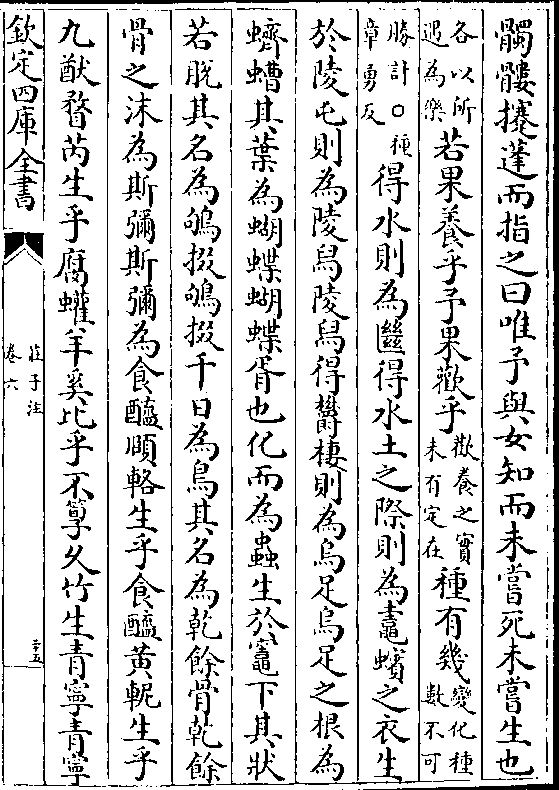 髑髏攓蓬而指之曰唯予與女知而未嘗死未嘗生也
各以所遇為樂若果養乎予果歡乎歡養之實未有定在種有幾變化種數不可
勝計○種章勇反得水則為㡭得水土之際則為鼃蠙之衣生
於陵屯則為陵舄陵舄得鬱棲則為烏足烏足之根為
蠐螬其葉為蝴蝶蝴蝶胥也化而為蟲生於竈下其狀
若脫其名為鴝掇鴝掇千日為鳥其名為乾餘骨乾餘
骨之沫為斯彌斯彌為食醯頤輅生乎食醯黃軦生乎
九猷瞀芮生乎腐蠸羊奚比乎不箰久竹生青寧青寧
欽定四庫全書
莊子注
卷六
二十五